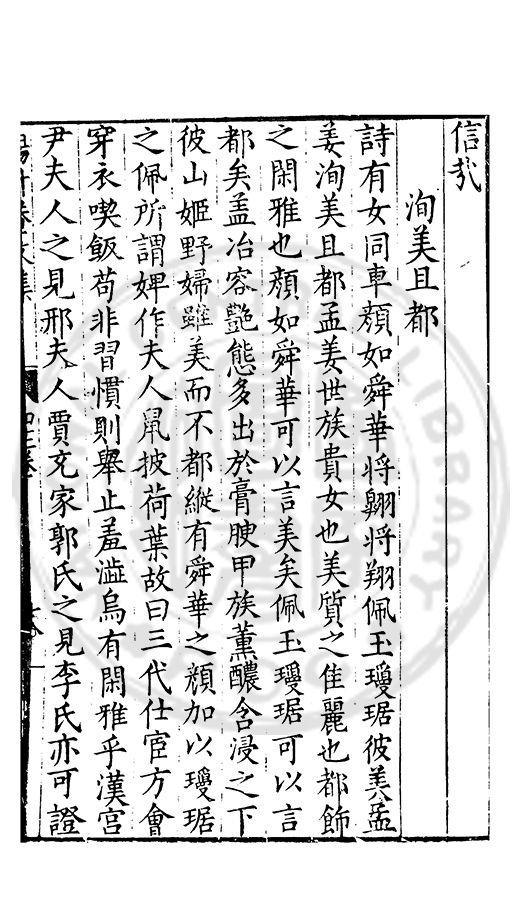 信哉
洵美且都
詩有女同車顔如舜華將翺將翔佩玉瓊琚彼美孟
姜洵美且都孟姜世族貴女也美質之佳麗也都飾
之閑雅也顔如舜華可以言美矣佩玉瓊琚可以言
都矣盖冶容艷態多出於膏腴甲族薰醲含浸之下
彼山姬野婦雖美而不都縱有舜華之顔加以瓊琚
之佩所謂婢作夫人鼠披荷葉故曰三代仕宦方會
穿衣喫飯苟非習慣則舉止羞澁烏有閑雅乎漢宫
尹夫人之見邢夫人賈充家郭氏之見李氏亦可證